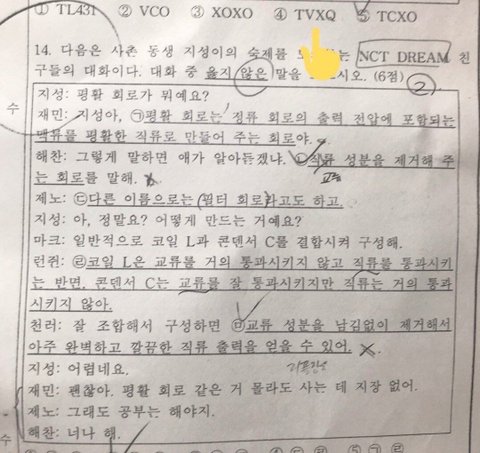 ① TL431 ② VCO ③ XOXO ④ TVXQ ⑤ TCXO
14. 다음은 사촌 동생 지성이의 숙제를 는 NCT DREAM 친
구들의 대화이다. 대화 중 옳지 않은 말을 시오. (6점)
②
수
지성: 평활 회로가 뭐예요?
재민: 지성아, ㉠평활 회로는 정류 회로의 출력 전압에 포함되는
맥류를 평활한 직류로 만들어 주는 회로야.
해찬: 그렇게 말하면 얘가 알아듣겠냐. ㉡직류 성분을 제거해 주
는 회로를 말해.
교류
제노: ㉢다른 이름으로는 필터 회로라고도 하고.
지성: 아, 정말요? 어떻게 만드는 거예요?
마크: 일반적으로 코일 L과 콘덴서 C를 결합시켜 구성해.
런쥔: ㉣코일 L은 교류를 거의 통과시키지 않고 직류를 통과시키
는 반면, 콘덴서 C는 교류를 잘 통과시키지만 직류는 거의 통과
시키지 않아.
천러: 잘 조합해서 구성하면 ㉤교류 성분을 남김없이 제거해서
아주 완벽하고 깔끔한 직류 출력을 얻을 수 있어.
지성: 어렵네요.
재민: 괜찮아. 평활 회로 같은 거 몰라도 사는 데 지장 없어.
제노: 그래도 공부는 해야지.
해찬: 너나 해.
수